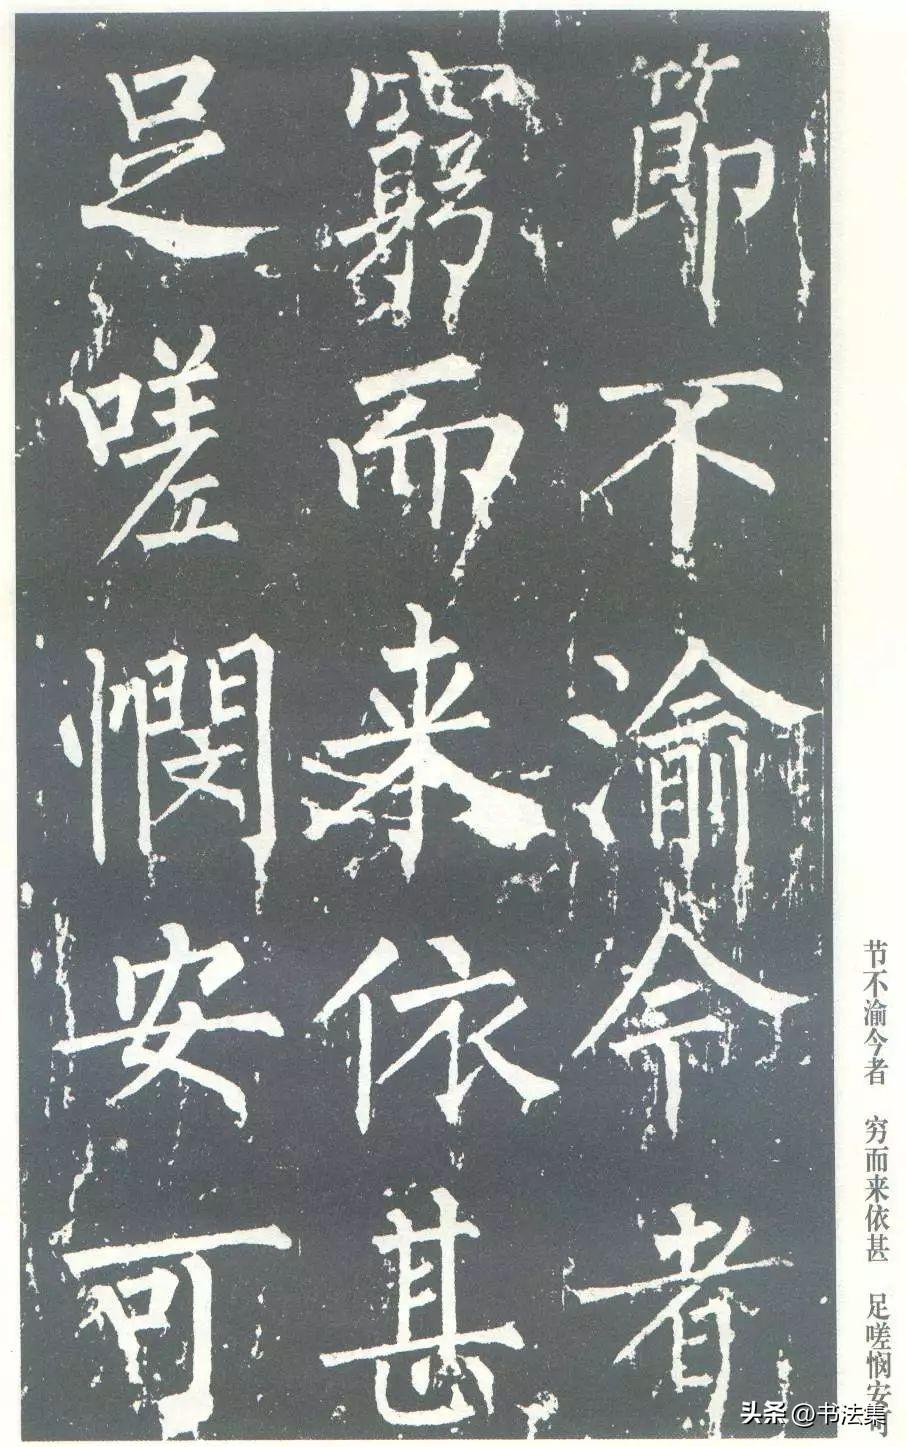 節不渝今者
窮而来依甚
足嗟憫安可
节不渝今者 穷而来依甚 足嗟悯安可
头条 @书法集